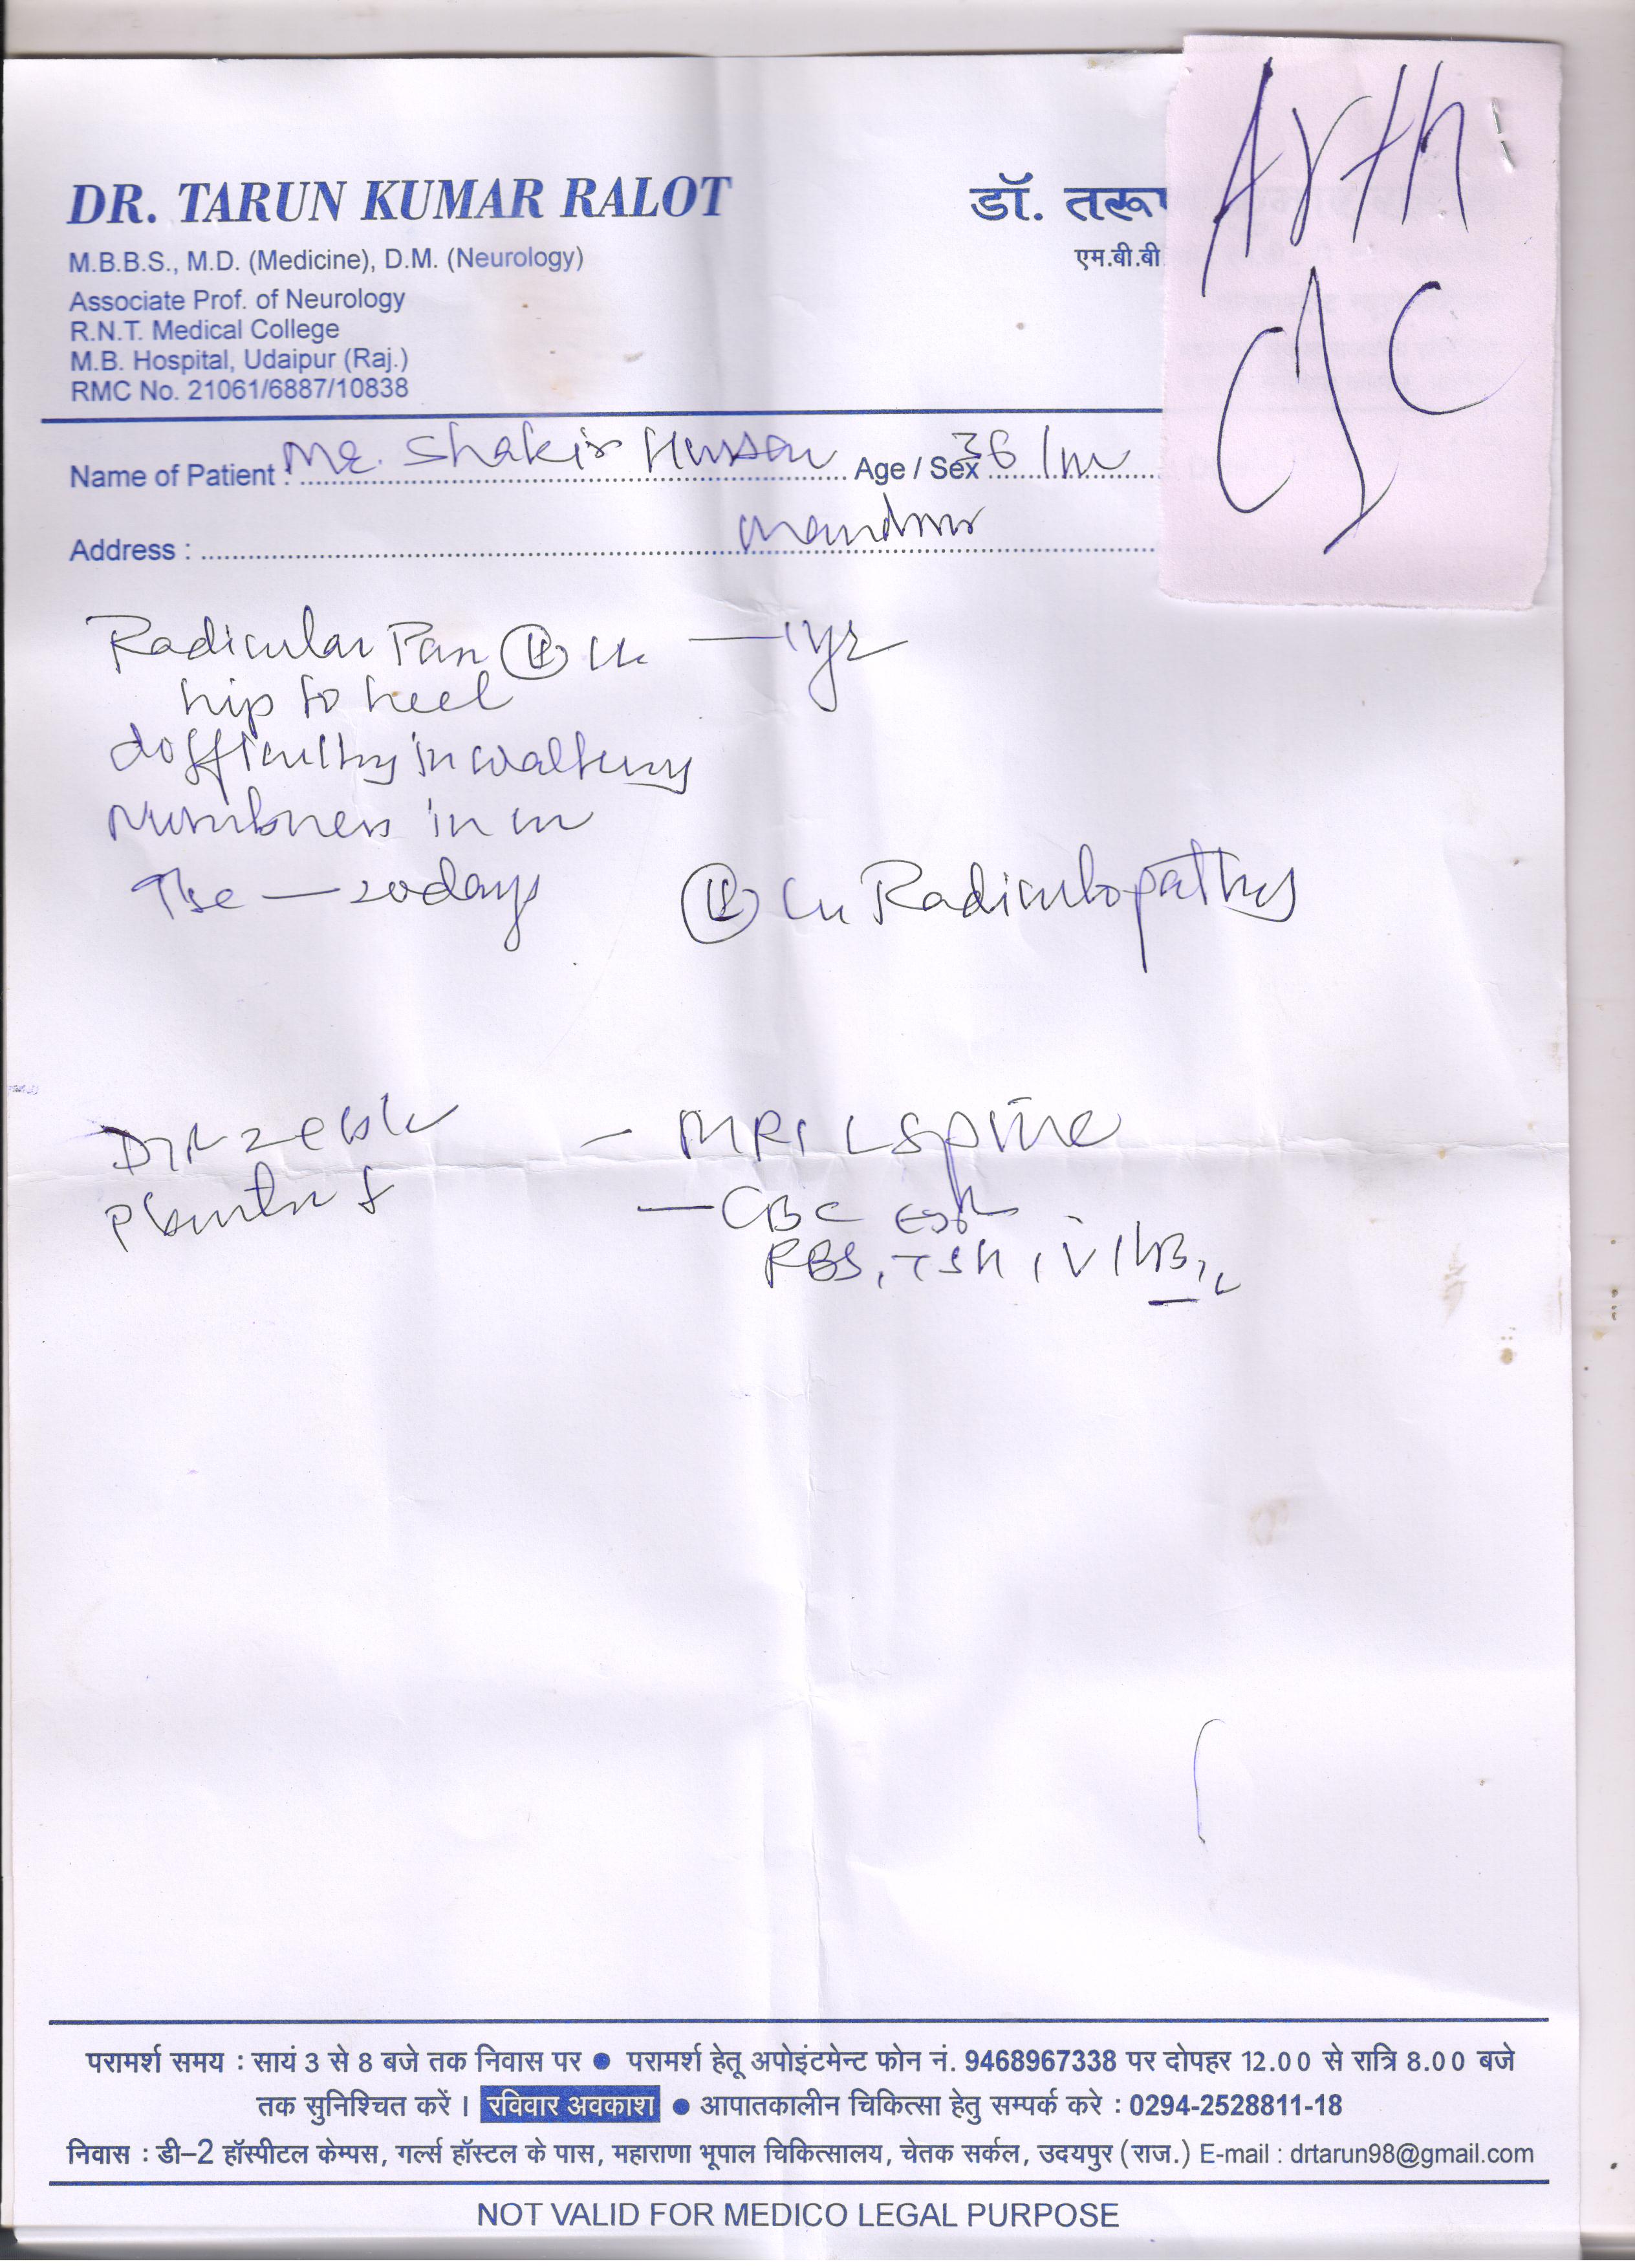 Arth
DR. TARUN KUMAR RALOT
डॉ. तरू
M.B.B.S., M.D. (Medicine), D.M. (Neurology)
एम.बी.बी
Associate Prof. of Neurology
R.N.T. Medical College
M.B. Hospital, Udaipur (Raj.)
RMC No. 21061/6887/10838
Name of Patient : Mr. Shakir Hussain Age / Sex 36/m
Address :
Radicular Pain Lt — 1yr
hip to heel
difficulty in walking
Numbness in
— 20days
Lt Radiculopathy
— MRI LSpine
— CBC ESR
RBS, TSH, Vit B12
परामर्श समय : सायं 3 से 8 बजे तक निवास पर ● परामर्श हेतू अपोइंटमेन्ट फोन नं. 9468967338 पर दोपहर 12.00 से रात्रि 8.00 बजे
तक सुनिश्चित करें । रविवार अवकाश ● आपातकालीन चिकित्सा हेतु सम्पर्क करे : 0294-2528811-18
निवास : डी–2 हॉस्पीटल केम्पस, गर्ल्स हॉस्टल के पास, महाराणा भूपाल चिकित्सालय, चेतक सर्कल, उदयपुर (राज.) E-mail : drtarun98@gmail.com
NOT VALID FOR MEDICO LEGAL PURPOSE